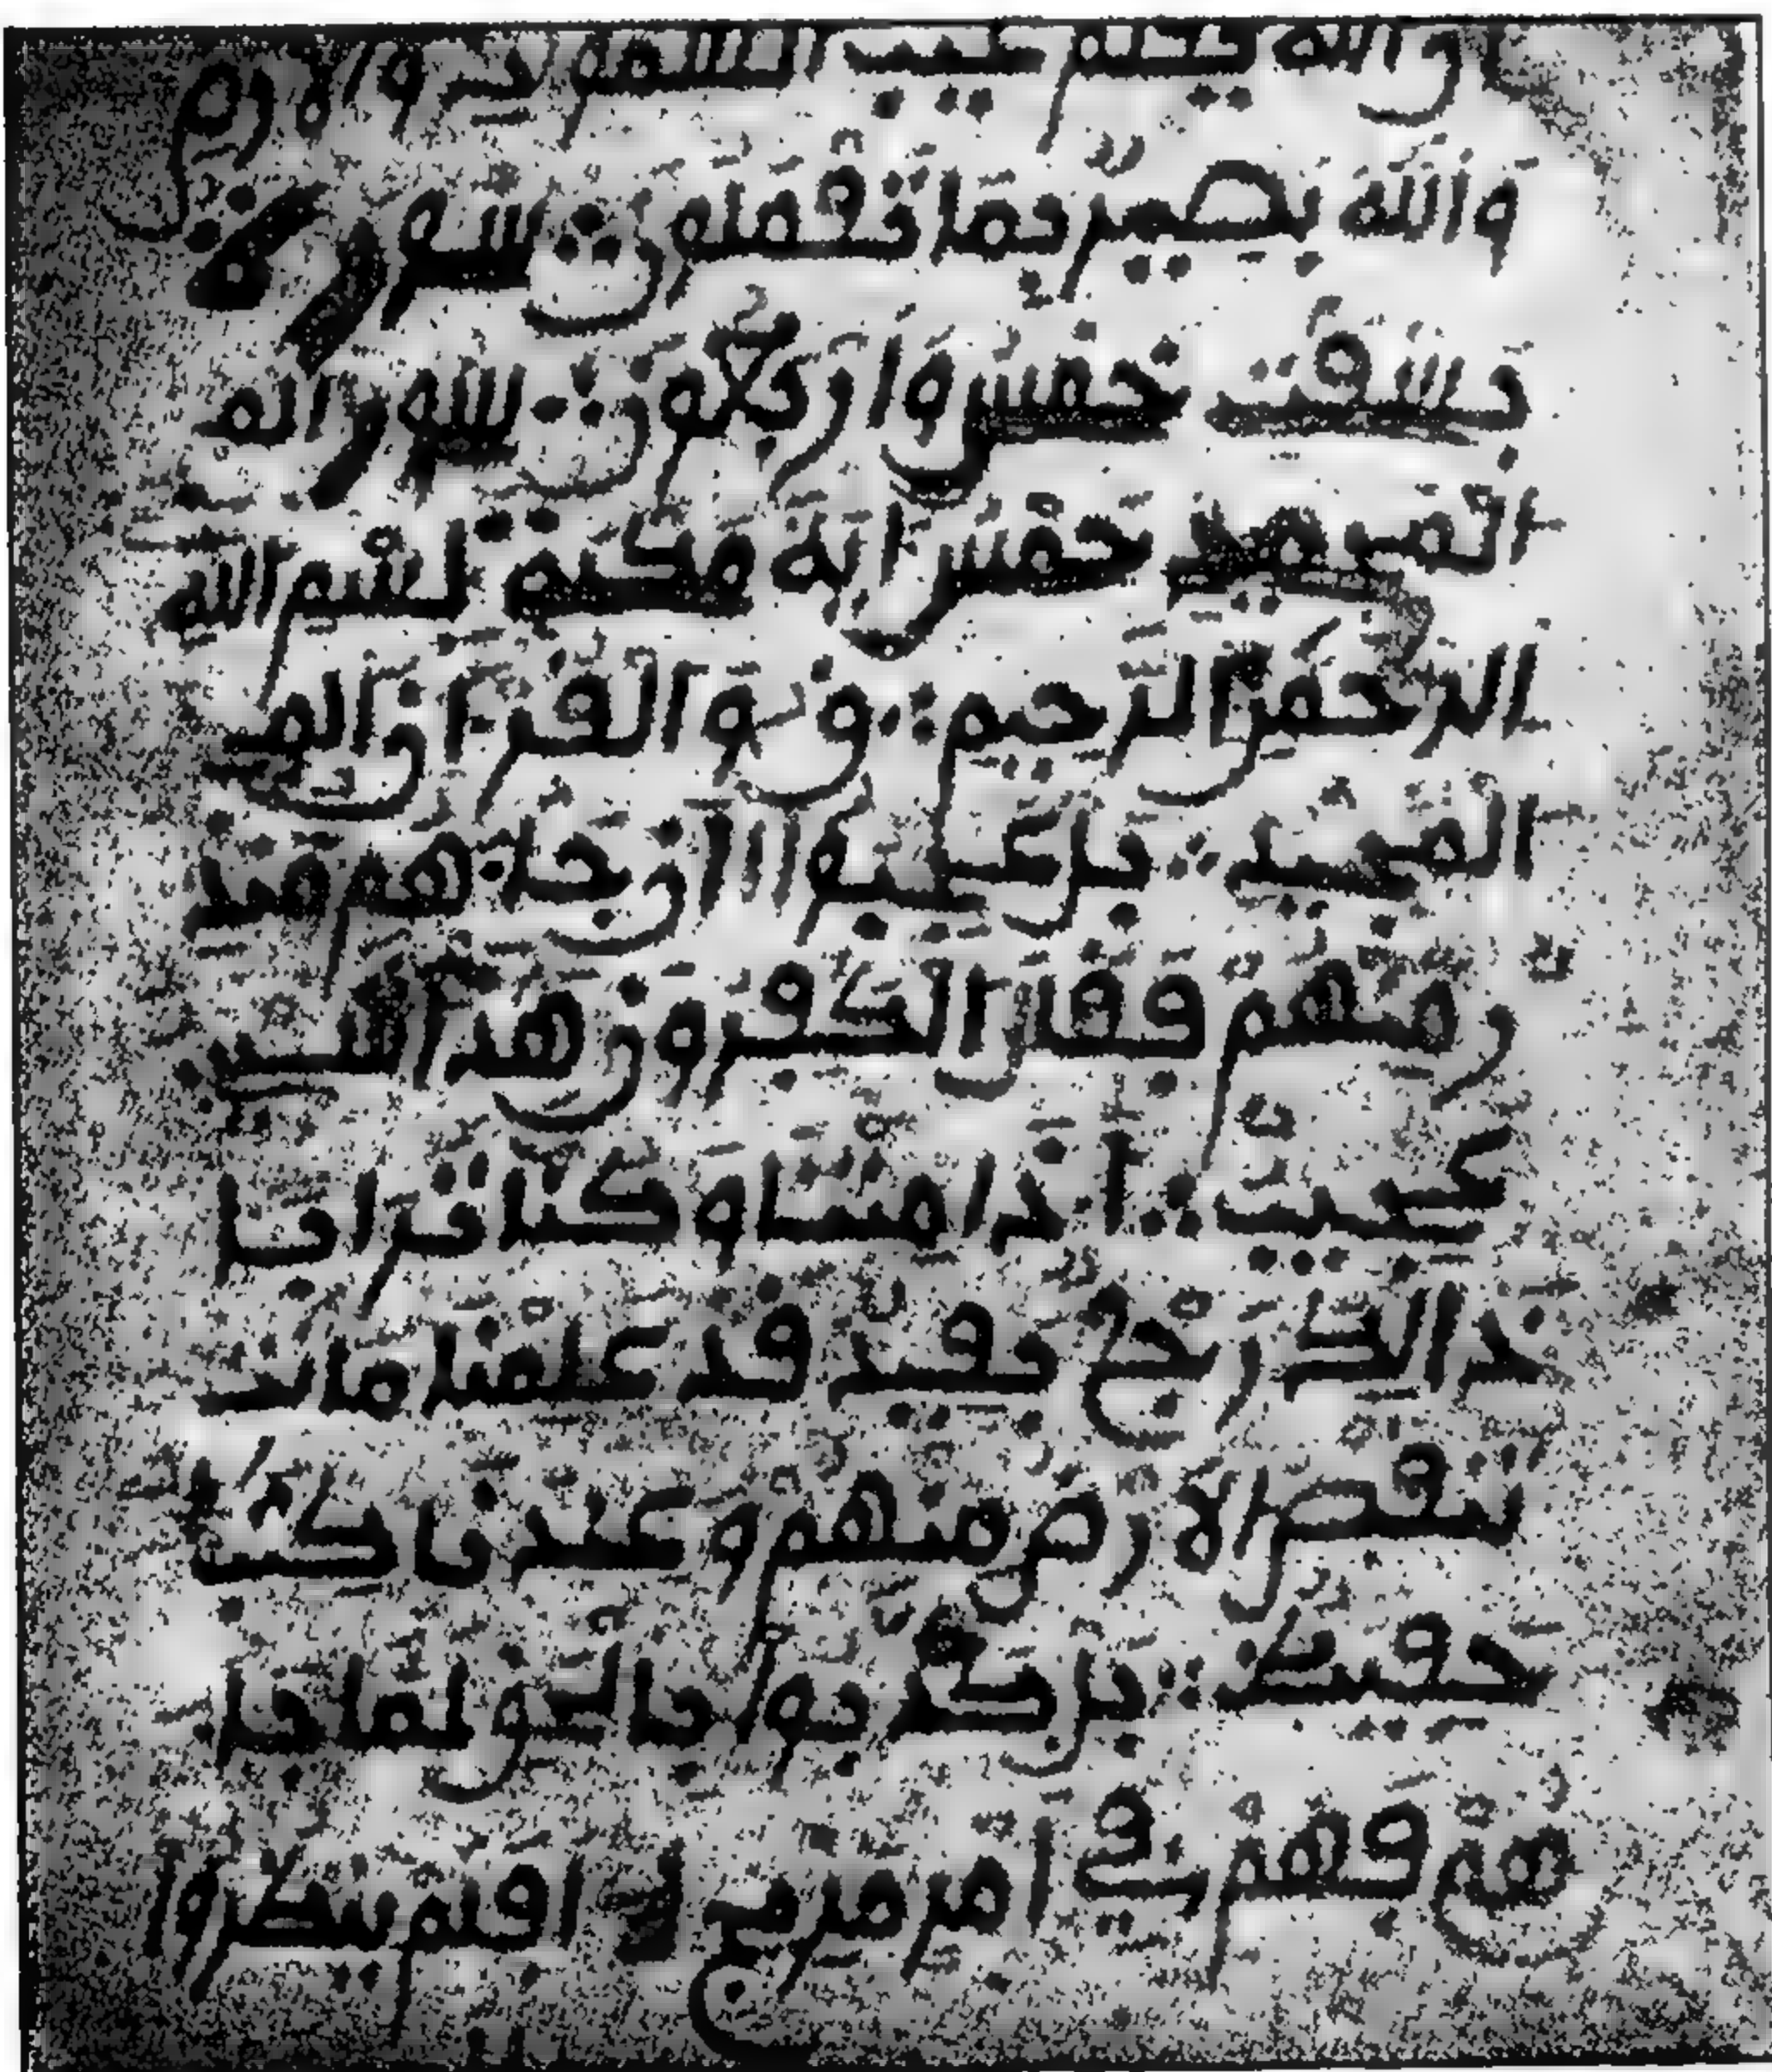 ان الله يعلم غيب السموت والارض
والله بصير بما تعملون سورة
بسقت خمس واربعون
خمس اية مكية بسم الله
الرحمن الرحيم ق و القران الم
المجيد بل عجبوا ان جاهم منذ
ر منهم فقال الكفرون هذا شي
عجيب اذا متنا وكنا ترابا
ذالك رجع بعيد قد علمنا ما
تنقص الارض منهم وعندنا كتا
حفيظ بل كذبوا بالحق لما جا
هم فهم في امر مريج افلم ينظروا